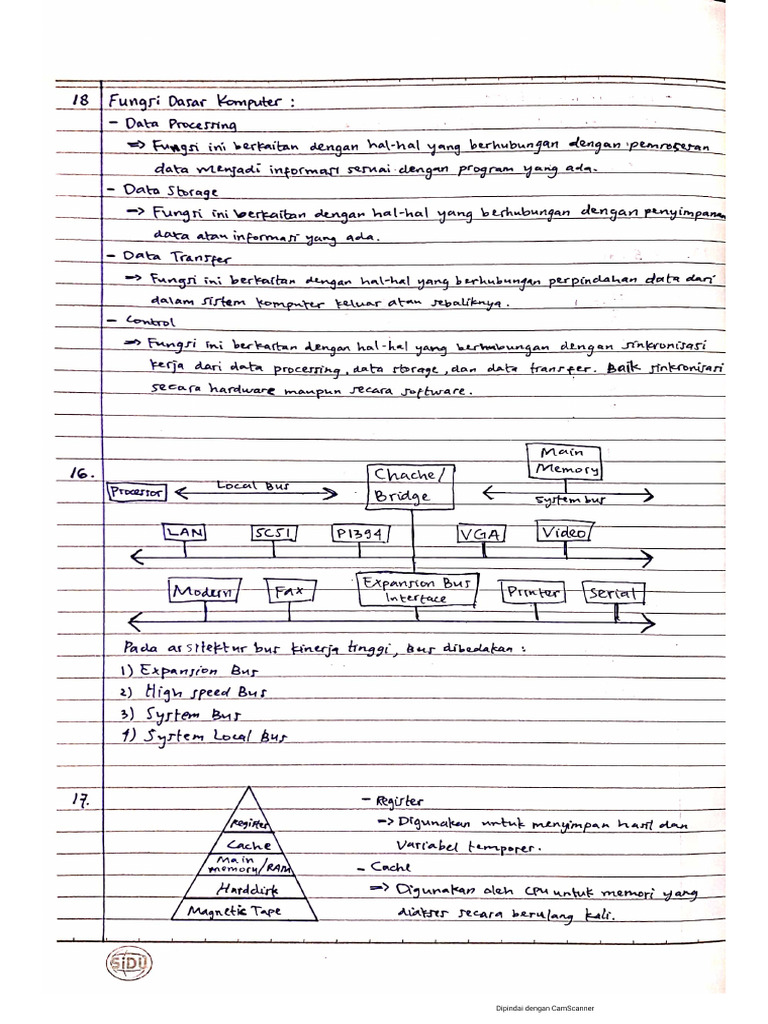 18 Fungsi Dasar Komputer :
- Data Processing
=> Fungsi ini berkaitan dengan hal-hal yang berhubungan dengan pemrosesan
data menjadi informasi sesuai dengan program yang ada.
- Data Storage
=> Fungsi ini berkaitan dengan hal-hal yang berhubungan dengan penyimpanan
data atau informasi yang ada.
- Data Transfer
=> Fungsi ini berkaitan dengan hal-hal yang berhubungan perpindahan data dari
dalam sistem komputer keluar atau sebaliknya.
- Control
=> Fungsi ini berkaitan dengan hal-hal yang berhubungan dengan sinkronisasi
kerja dari data processing, data storage, dan data transfer. Baik sinkronisasi
secara hardware maupun secara software.
16.
Processor
Local Bus
Chache/
Bridge
Main
Memory
System bus
LAN SCSI P1394 VGA Video
Modern Fax Expansion Bus
Interface
Printer Serial
Pada arsitektur bus kinerja tinggi, Bus dibedakan :
1) Expansion Bus
2) High speed Bus
3) System Bus
4) System Local Bus
17.
Register
Cache
Main
memory/RAM
Harddisk
Magnetic Tape
- Register
=> Digunakan untuk menyimpan hasil dan
variabel temporer.
- Cache
=> Digunakan oleh CPU untuk memori yang
diakses secara berulang kali.
SIDU
Dipindai dengan CamScanner